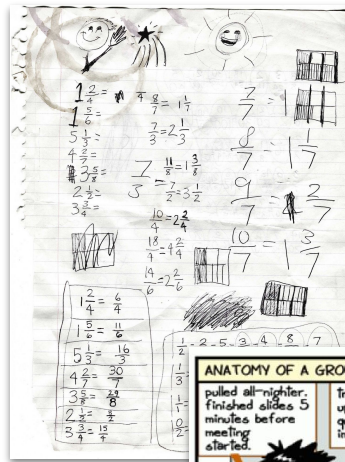 1 2/4 =
1 5/6 =
5 1/3 =
4 2/7 =
3 5/8 =
2 1/2 =
3 3/4 =
8/7 = 1 1/7
7/3 = 2 1/3
7/3
11/8 = 1 3/8
7/2 = 3 1/2
10/4 = 2 2/4
18/4 = 4 2/4
14/6 = 2 2/6
7/7 = 1
8/7 = 1 1/7
9/7 = 1 2/7
10/7 = 1 3/7
1 2/4 = 6/4
1 5/6 = 11/6
5 1/3 = 16/3
4 2/7 = 30/7
3 5/8 = 29/8
2 1/2 = 5/2
3 3/4 = 15/4
ANATOMY OF A GRO
pulled all-nighter.
finished slides 5
minutes before
meeting
started.